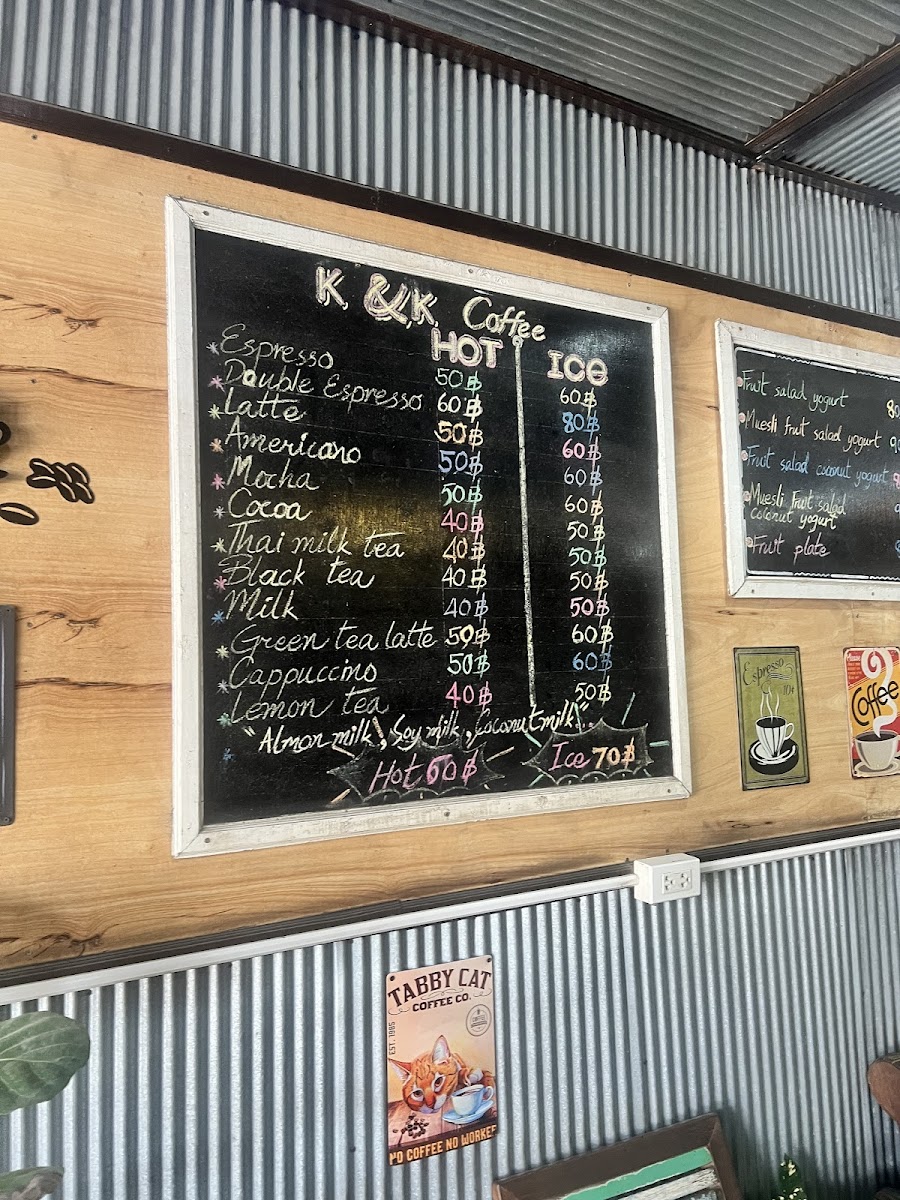 K. & K. Coffee
HOT ICE
*Espresso 50฿ 60฿
*Double Espresso 60฿ 80฿
*Latte 50฿ 60฿
*Americano 50฿ 60฿
*Mocha 50฿ 60฿
*Cocoa 40฿ 50฿
*Thai milk tea 40฿ 50฿
*Black tea 40฿ 50฿
*Milk 40฿ 50฿
*Green tea latte 50฿ 60฿
*Cappuccino 50฿ 60฿
*Lemon tea 40฿ 50฿
"Almon milk, Soy milk, Coconut milk"
Hot 60฿ Ice 70฿
Fruit salad yogurt
Muesli fruit salad yogurt
Fruit salad coconut yogurt
Muesli Fruit salad
coconut yogurt
Fruit plate
Espresso
10¢
Coffee
TABBY CAT
COFFEE CO.
EST. 1985
NO COFFEE NO WORKEE